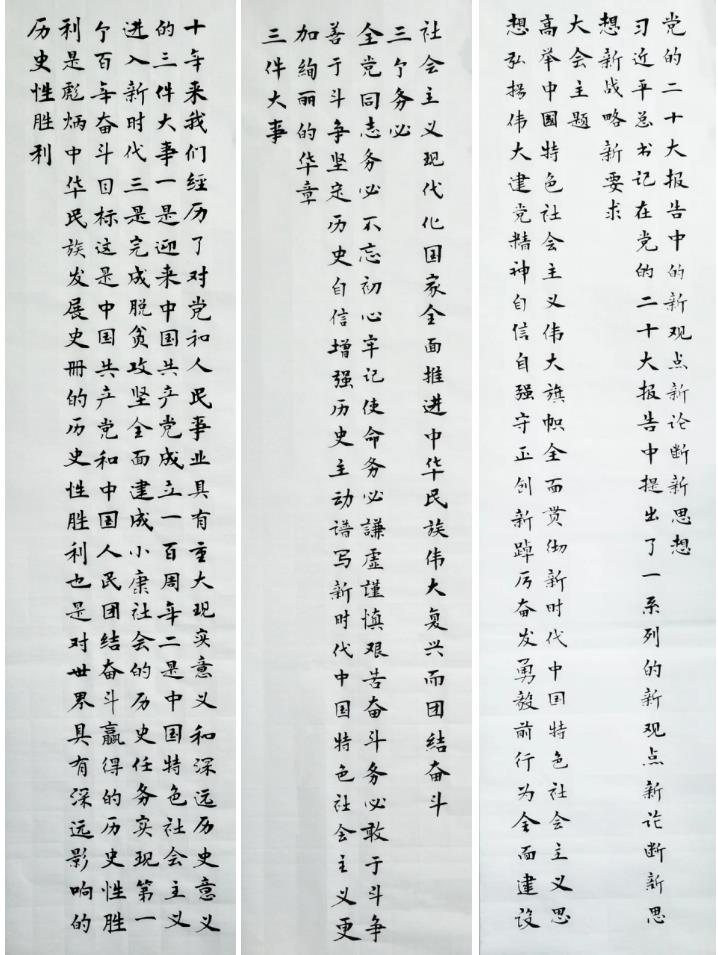 党的二十大报告中的新观点新论断新思想
习近平总书记在党的二十大报告中提出了一系列的新观点新论断新思
想新战略新要求
大会主题
高举中国特色社会主义伟大旗帜全面贯彻新时代中国特色社会主义思
想弘扬伟大建党精神自信自强守正创新踔厉奋发勇毅前行为全面建设
社会主义现代化国家全面推进中华民族伟大复兴而团结奋斗
三个务必
全党同志务必不忘初心牢记使命务必謙虚謹慎艰苦奋斗务必敢于斗争
善于斗争坚定历史自信增强历史主动谱写新时代中国特色社会主义更
加绚丽的华章
三件大事
十年来我们经历了对党和人民事业具有重大现实意义和深远历史意义
的三件大事一是迎来中国共产党成立一百周年二是中国特色社会主义
进入新时代三是完成脱贫攻坚全面建成小康社会的历史任务实现第一
个百年奋斗目标这是中国共产党和中国人民团结奋斗赢得的历史性胜
利是彪炳中华民族发展史册的历史性胜利也是对世界具有深远影响的
历史性胜利